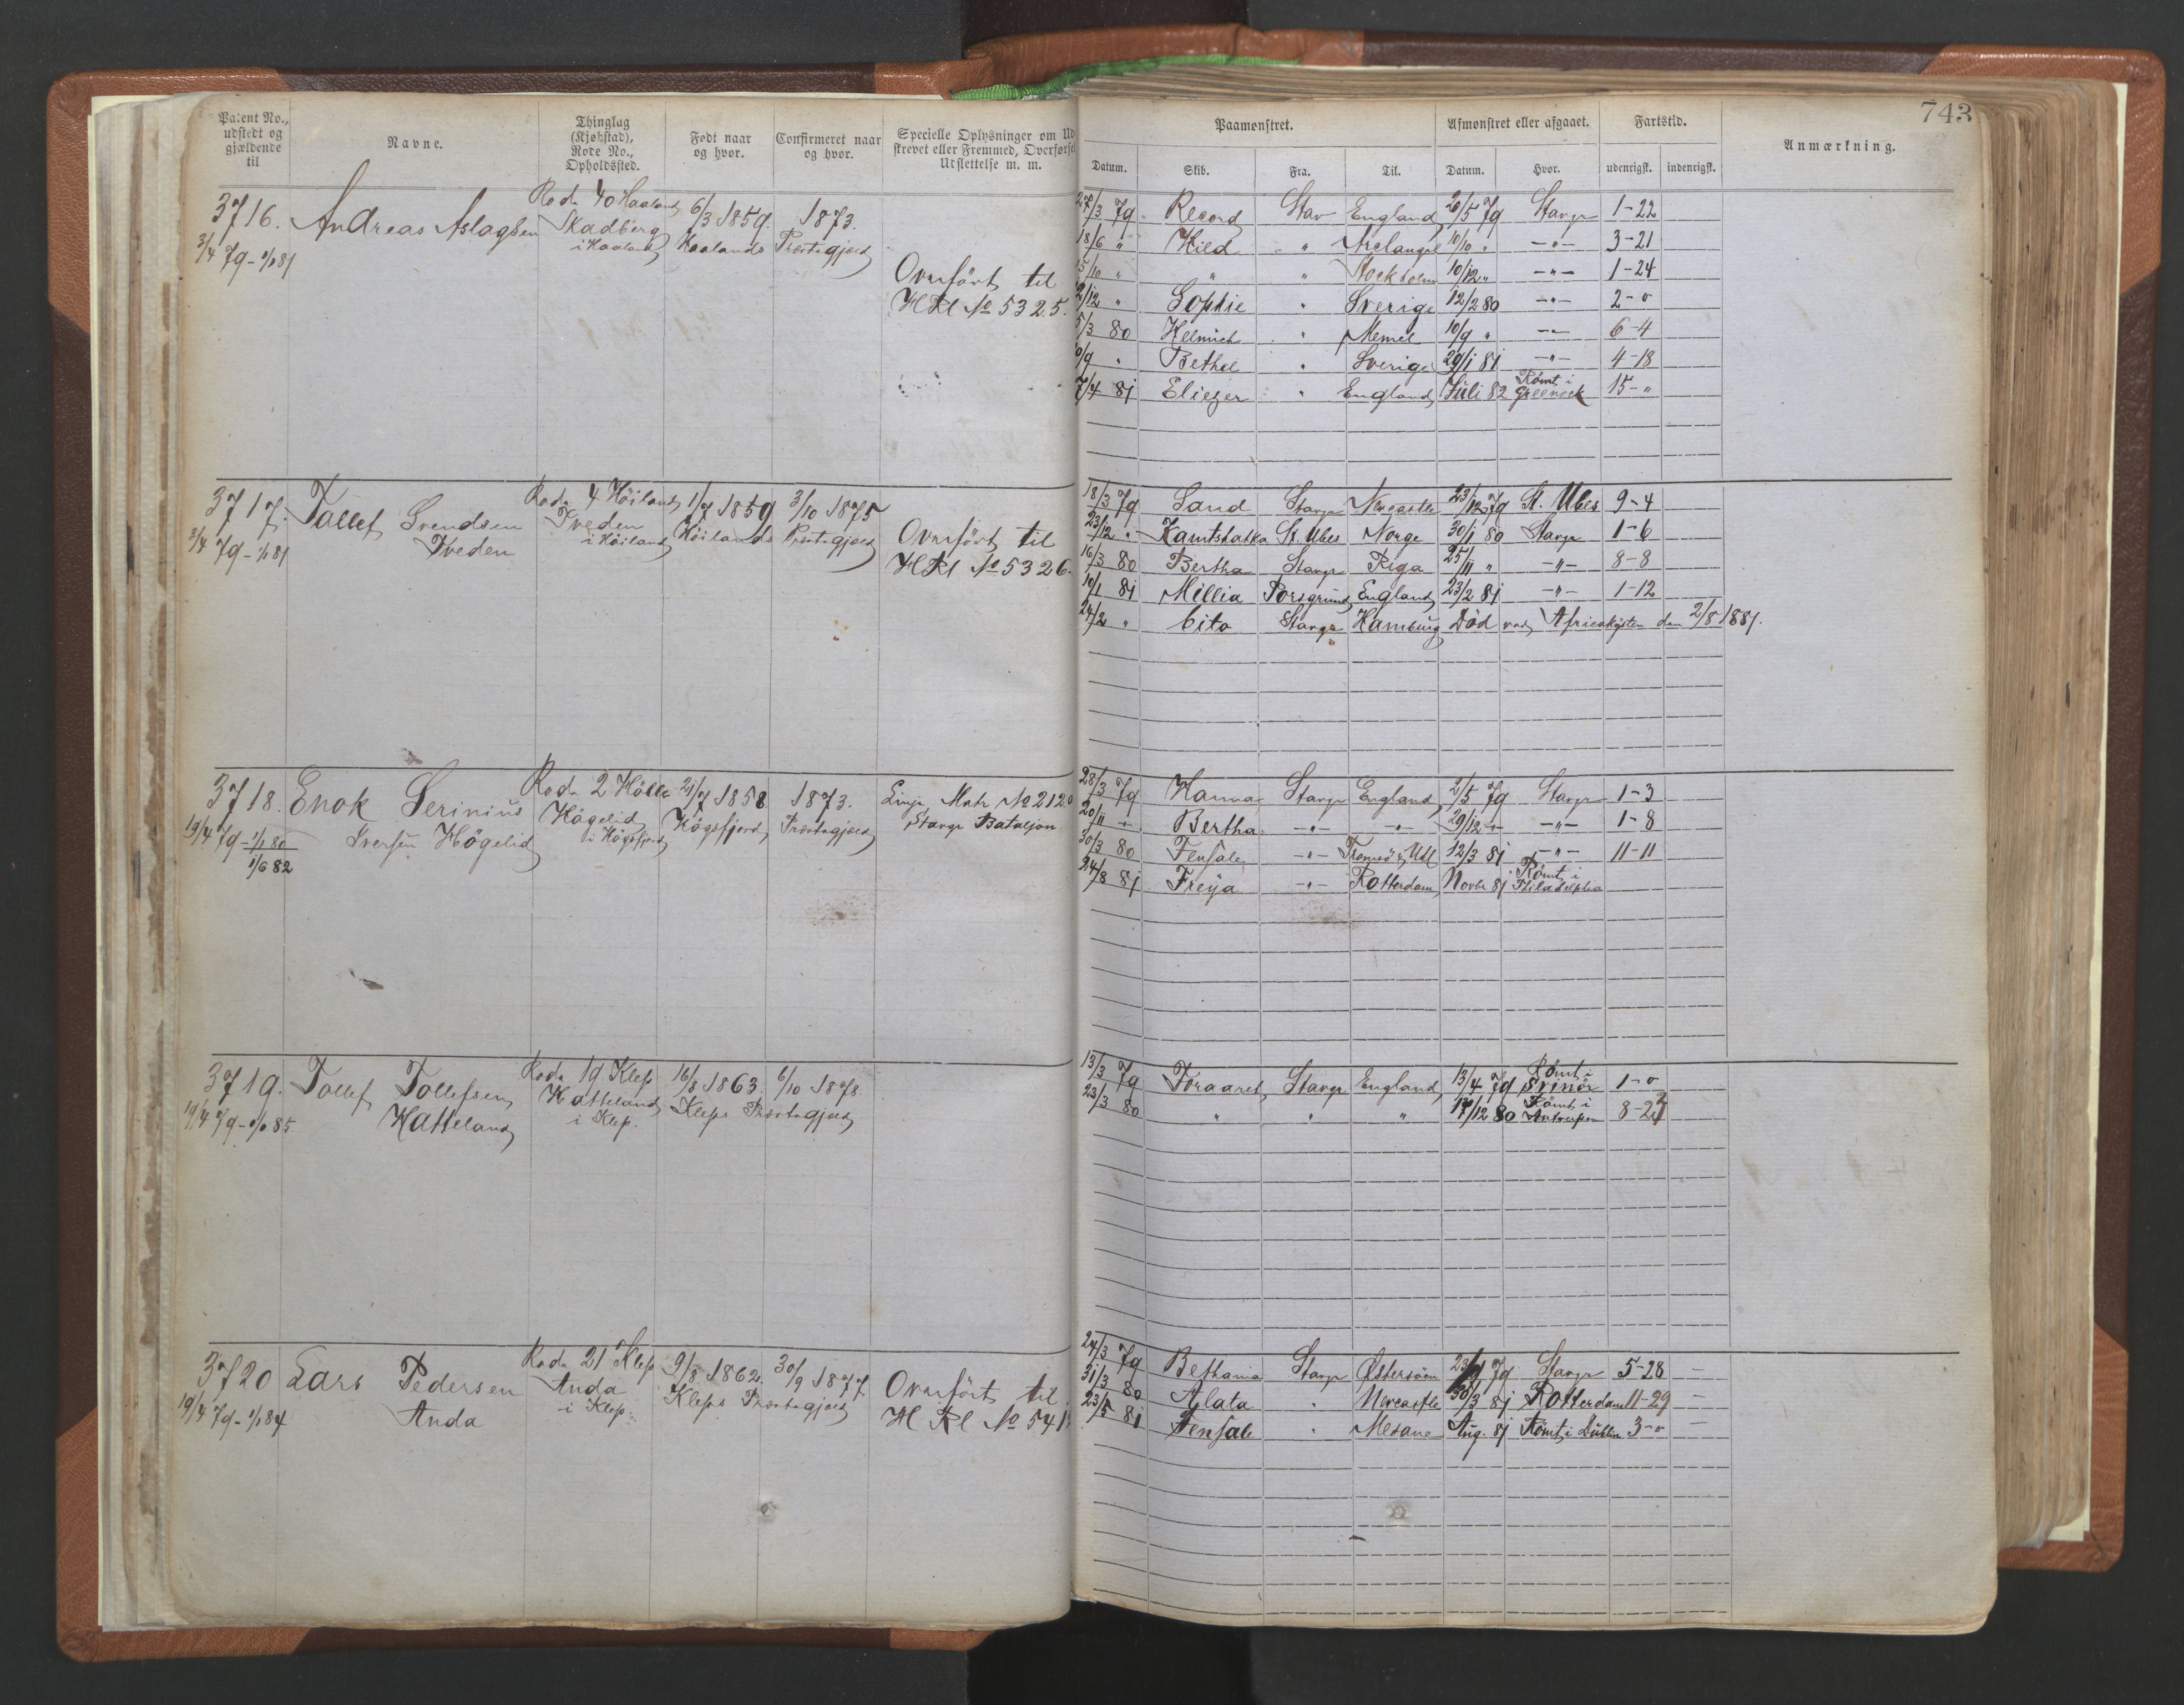 743
Patent No., udstedt og gjældende til
Navne.
Thinglag (Kjøbstad), Rode No., Opholdssted.
Født naar og hvor.
Confirmeret naar og hvor.
Specielle Oplysninger om Ud
skrevet eller Fremmed, Overførsel
Udslettelse m. m.
Paamønstret.
Afmønstret eller afgaaet.
Fartstid.
Anmærkning.
Datum. Skib. Fra. Til. Datum. Hvor. udenrigsk. indenrigsk.
3716. Andreas Aslagsen Rode 40 Haaland 6/3 1859. 1873.
3/4 79 - 1/1 81 Skadberg i Haaland Haalands Præstegjæld
Overført til
HRl No 5325.
27/3 79 Record Stav England 20/5 79 Stavgr 1-22
18/6 " Hild " Archangel 10/10 " -"- 3-21
15/10 " " " Stockholm 10/12 " -"- 1-24
12/12 " Sophie " Sverige 12/2 80 -"- 2-0
5/3 80 Helmich " Memel 10/9 " -"- 6-4
10/9 " Bethel " Sverige 29/1 81 -"- 4-18
7/4 81 Eliezer " England Juli 82 Rømt i Greenock 15-"
3717. Tallef Svendsen Rode 4 Höiland 1/7 1859 3/10 1875
3/4 79 - 1/1 81 Tveden Tveden i Höiland Höilands Præstegjæld
Overført til
HRl No 5326.
18/3 79 Sand Stavgr Newcastle 23/12 79 St. Ubes 9-4
23/12 " Kamtshatka St. Ubes Norge 30/1 80 Stavgr 1-6
16/3 80 Bertha Stavgr Riga 25/11 " -"- 8-8
10/1 81 Millia Porsgrund England 23/2 81 -"- 1-12
24/2 " Cito Stavgr Hamburg Död ved Africakysten den 2/8 1881.
3718. Enok Serinius Rode 2 Hölle 21/7 1858 1873.
19/4 79 - 1/1 80 Iversen Högelid Högelid i Högsfjord Högsfjord Præstegjæld
1/6 82
Linje Matr No 2120
Stavgr Bataljon
28/3 79 Hanna Stavgr England 2/5 79 Stavgr 1-3
20/11 - Bertha -"- -"- 29/12 - -"- 1-8
30/3 80 Fensale -"- Tromsö & Udl 12/3 81 -"- 11-11
24/8 81 Freya -"- Rotterdam Novbr 81 Rømt i Philadelphia
3719. Tollef Tollefsen Rode 19 Klep 16/8 1863. 6/10 1878
19/4 79 - 1/1 85 Hatteland Hatteland i Klep. Kleps Præstegjæld
13/3 79 Foraaret Stavgr England 13/4 79 Rømt i Svinör 1-0
23/3 80 " " " 17/12 80 Rømt i Antwerpen 8-23
3720 Lars Pedersen Rode 21 Klep 9/8 1862. 30/9 1877.
19/4 79 - 1/1 84 Anda Anda i Klep. Kleps Præstegjæld
Overført til
H Rl No 541
24/3 79 Bethania Stavgr Østersöen 79 Stavgr 5-28 -
31/3 80 Alata " Newcastle 30/3 81 Rotterdam 11-29 -
23/5 81 Fensale " Mesane Aug. 81 Rømt i Dublin 3-0 -